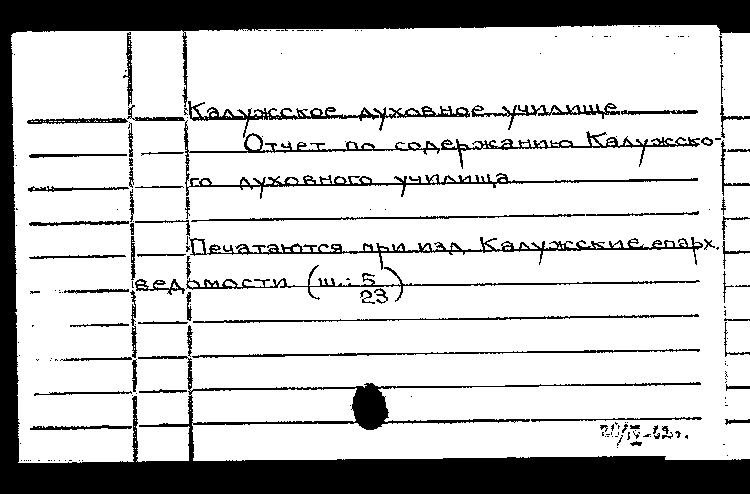 Калужское духовное училище
Отчет по содержанию Калужско-
го духовного училища
Печатаются при изд. Калужские епарх.
ведомости (ш.: 5
23)
20/IV-62г.